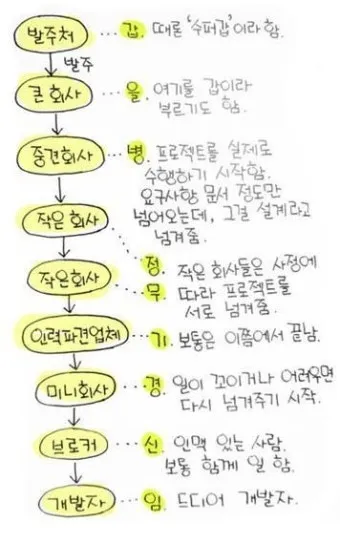 발주처 ... 갑. 때론 '수퍼갑'이라 함.
발주
큰 회사 ... 을. 여기를 갑이라
부르기도 함.
중견회사 ... 병. 프로젝트를 실제로
수행하기 시작함.
요구사항 문서 정도만
넘어오는데, 그걸 설계라고
넘겨줌.
작은 회사
정. 작은 회사들은 사정에
작은회사 ... 무. 따라 프로젝트를
서로 넘겨줌.
인력파견업체 ... 기. 보통은 이쯤에서 끝남.
미니회사 ... 경. 일이 꼬이거나 어려우면
다시 넘겨주기 시작.
브로커 ... 신. 인맥 있는 사람.
보통 함께 일 함.
개발자 ... 임. 드디어 개발자.